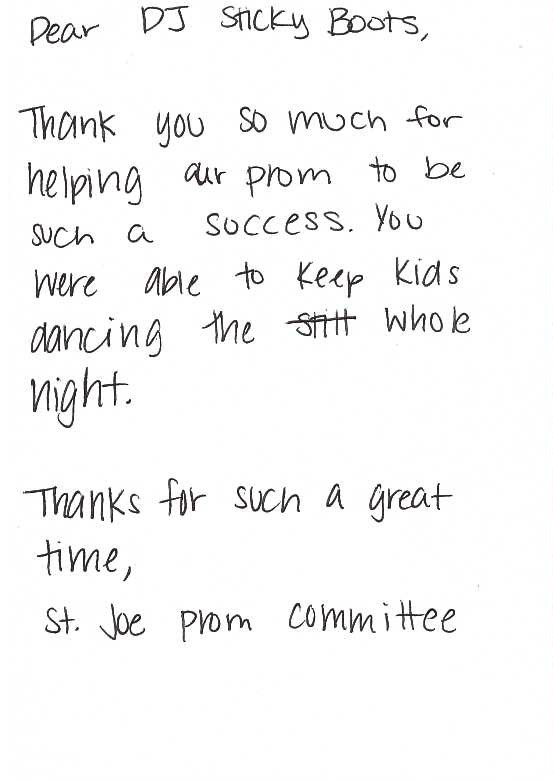 Dear DJ Sticky Boots,
Thank you so much for
helping our prom to be
such a success. You
were able to keep kids
dancing the still whole
night.
Thanks for such a great
time,
St. Joe prom committee